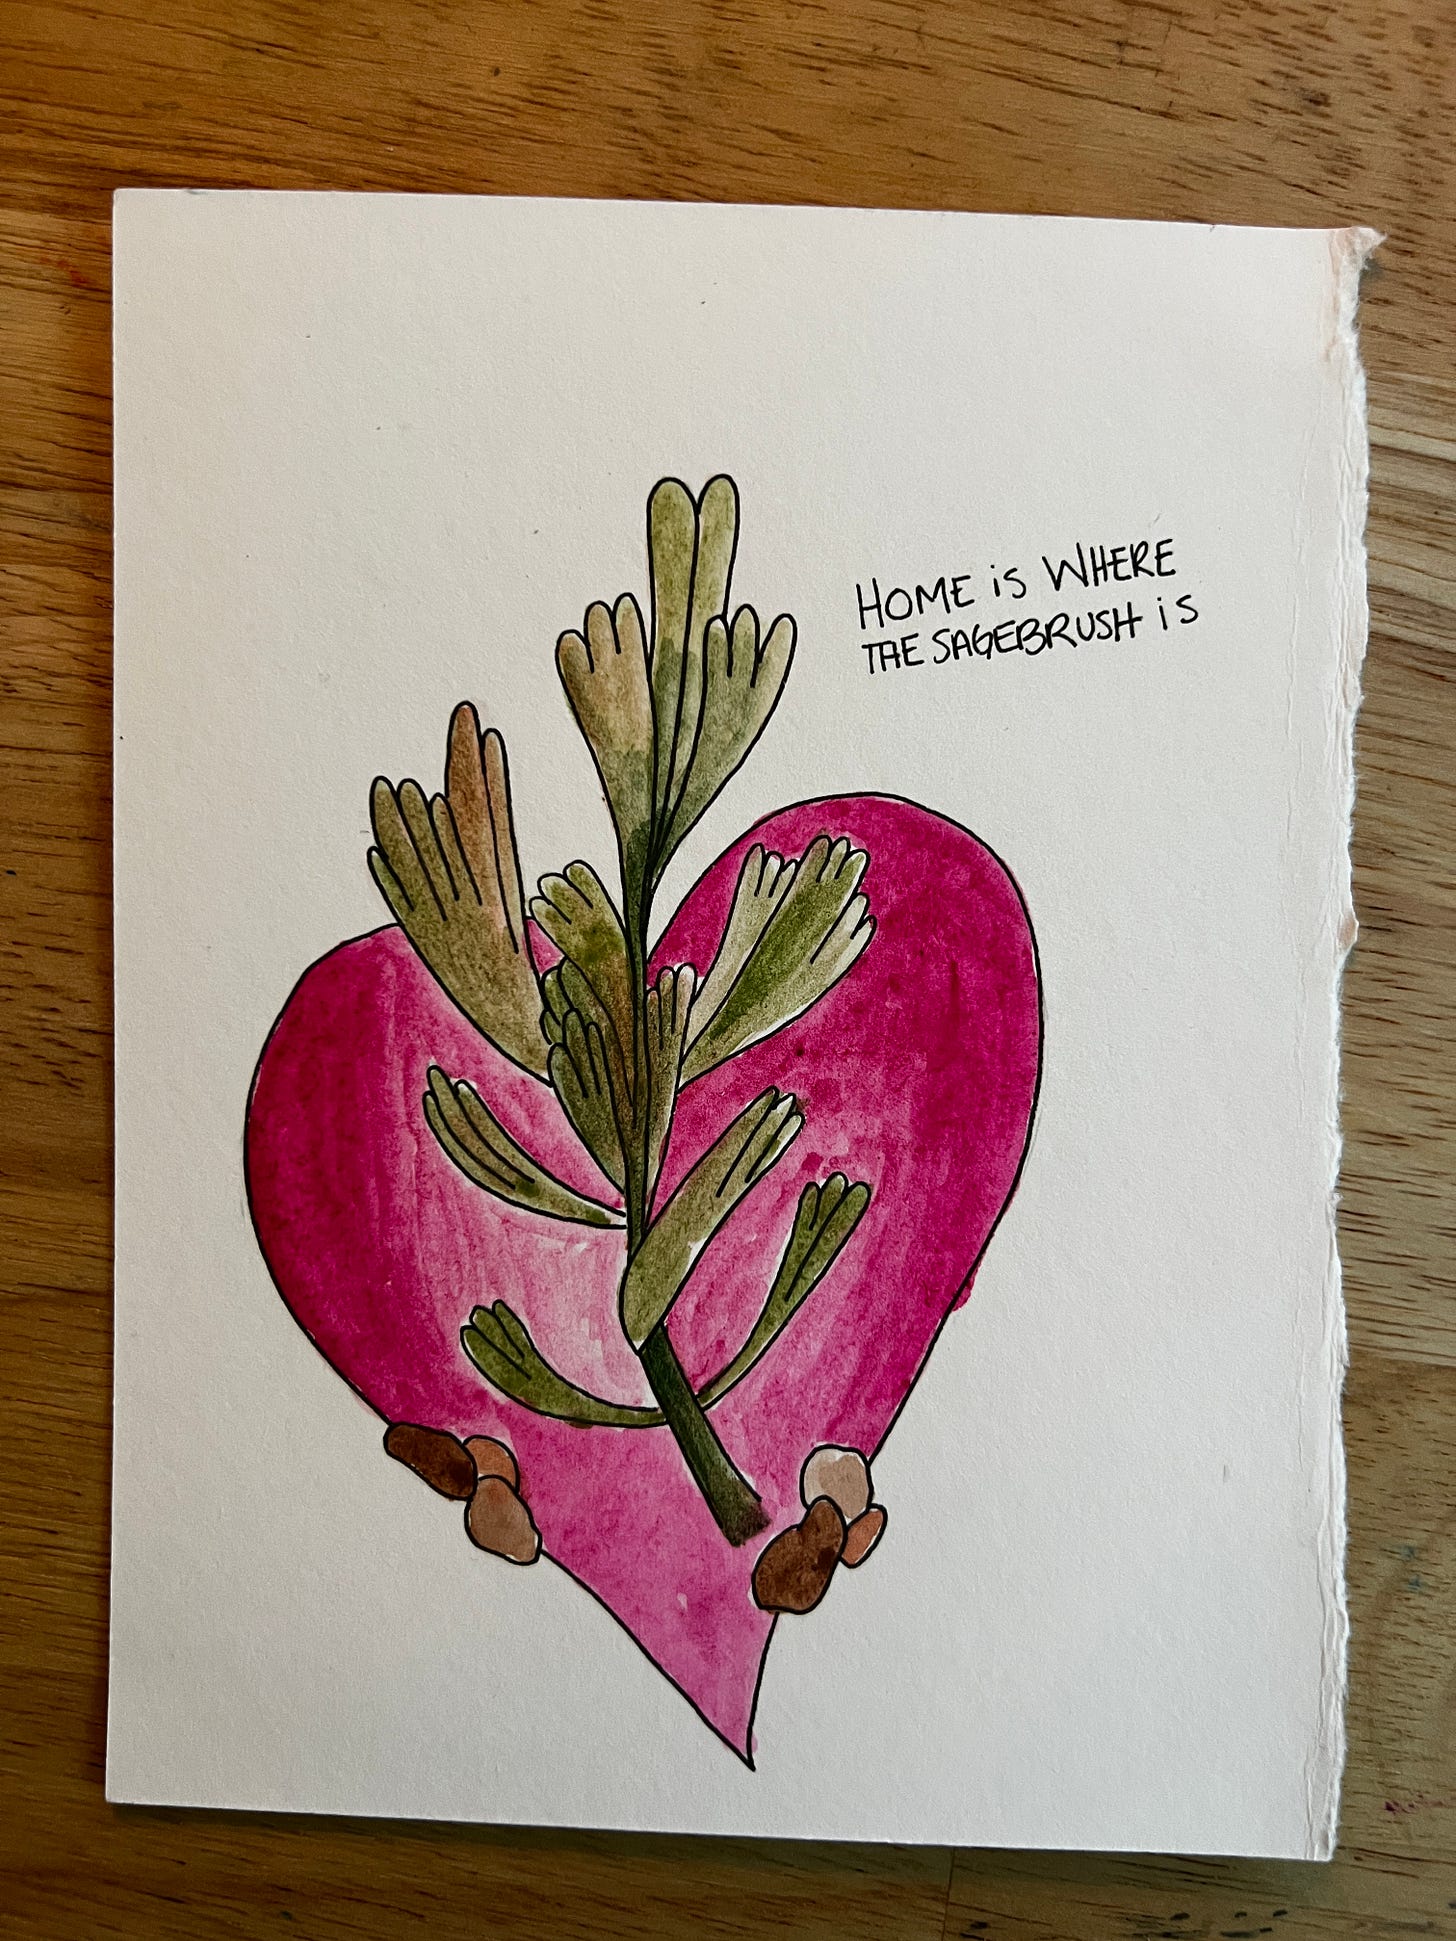 HOME iS WHERE
THE SAGEBRUSH iS